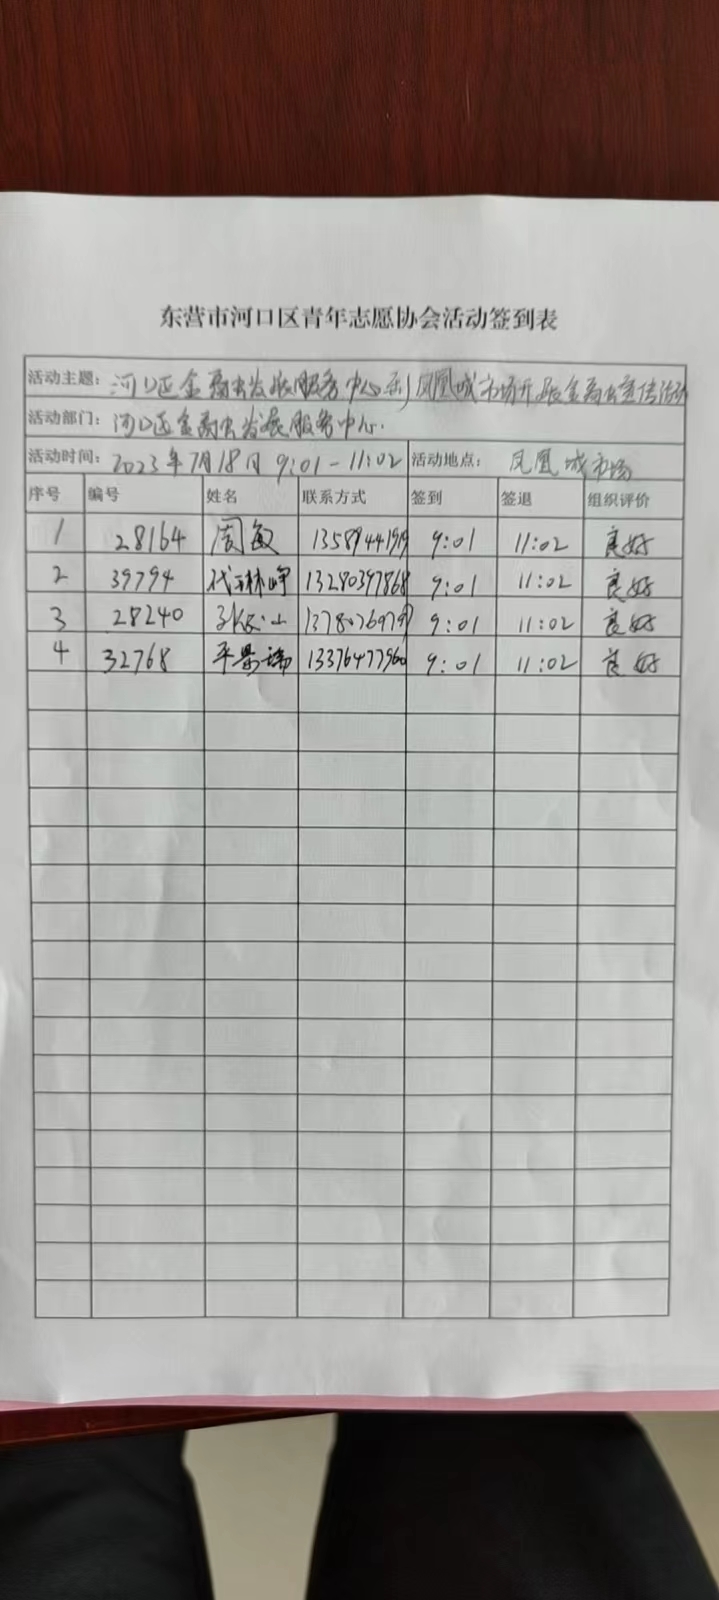 东营市河口区青年志愿协会活动签到表
活动主题：河口区金融发展服务中心到凤凰城市场开展金融宣传活动
活动部门：河口区金融发展服务中心.
活动时间：2023年7月18日 9:01-11:02 活动地点：凤凰城市场
序号 编号 姓名 联系方式 签到 签退 组织评价
1 28164 周敏 9:01 11:02 良好
2 39794 13280397868 9:01 11:02 良好
3 28240 9:01 11:02 良好
4 32768 13376477960 9:01 11:02 良好